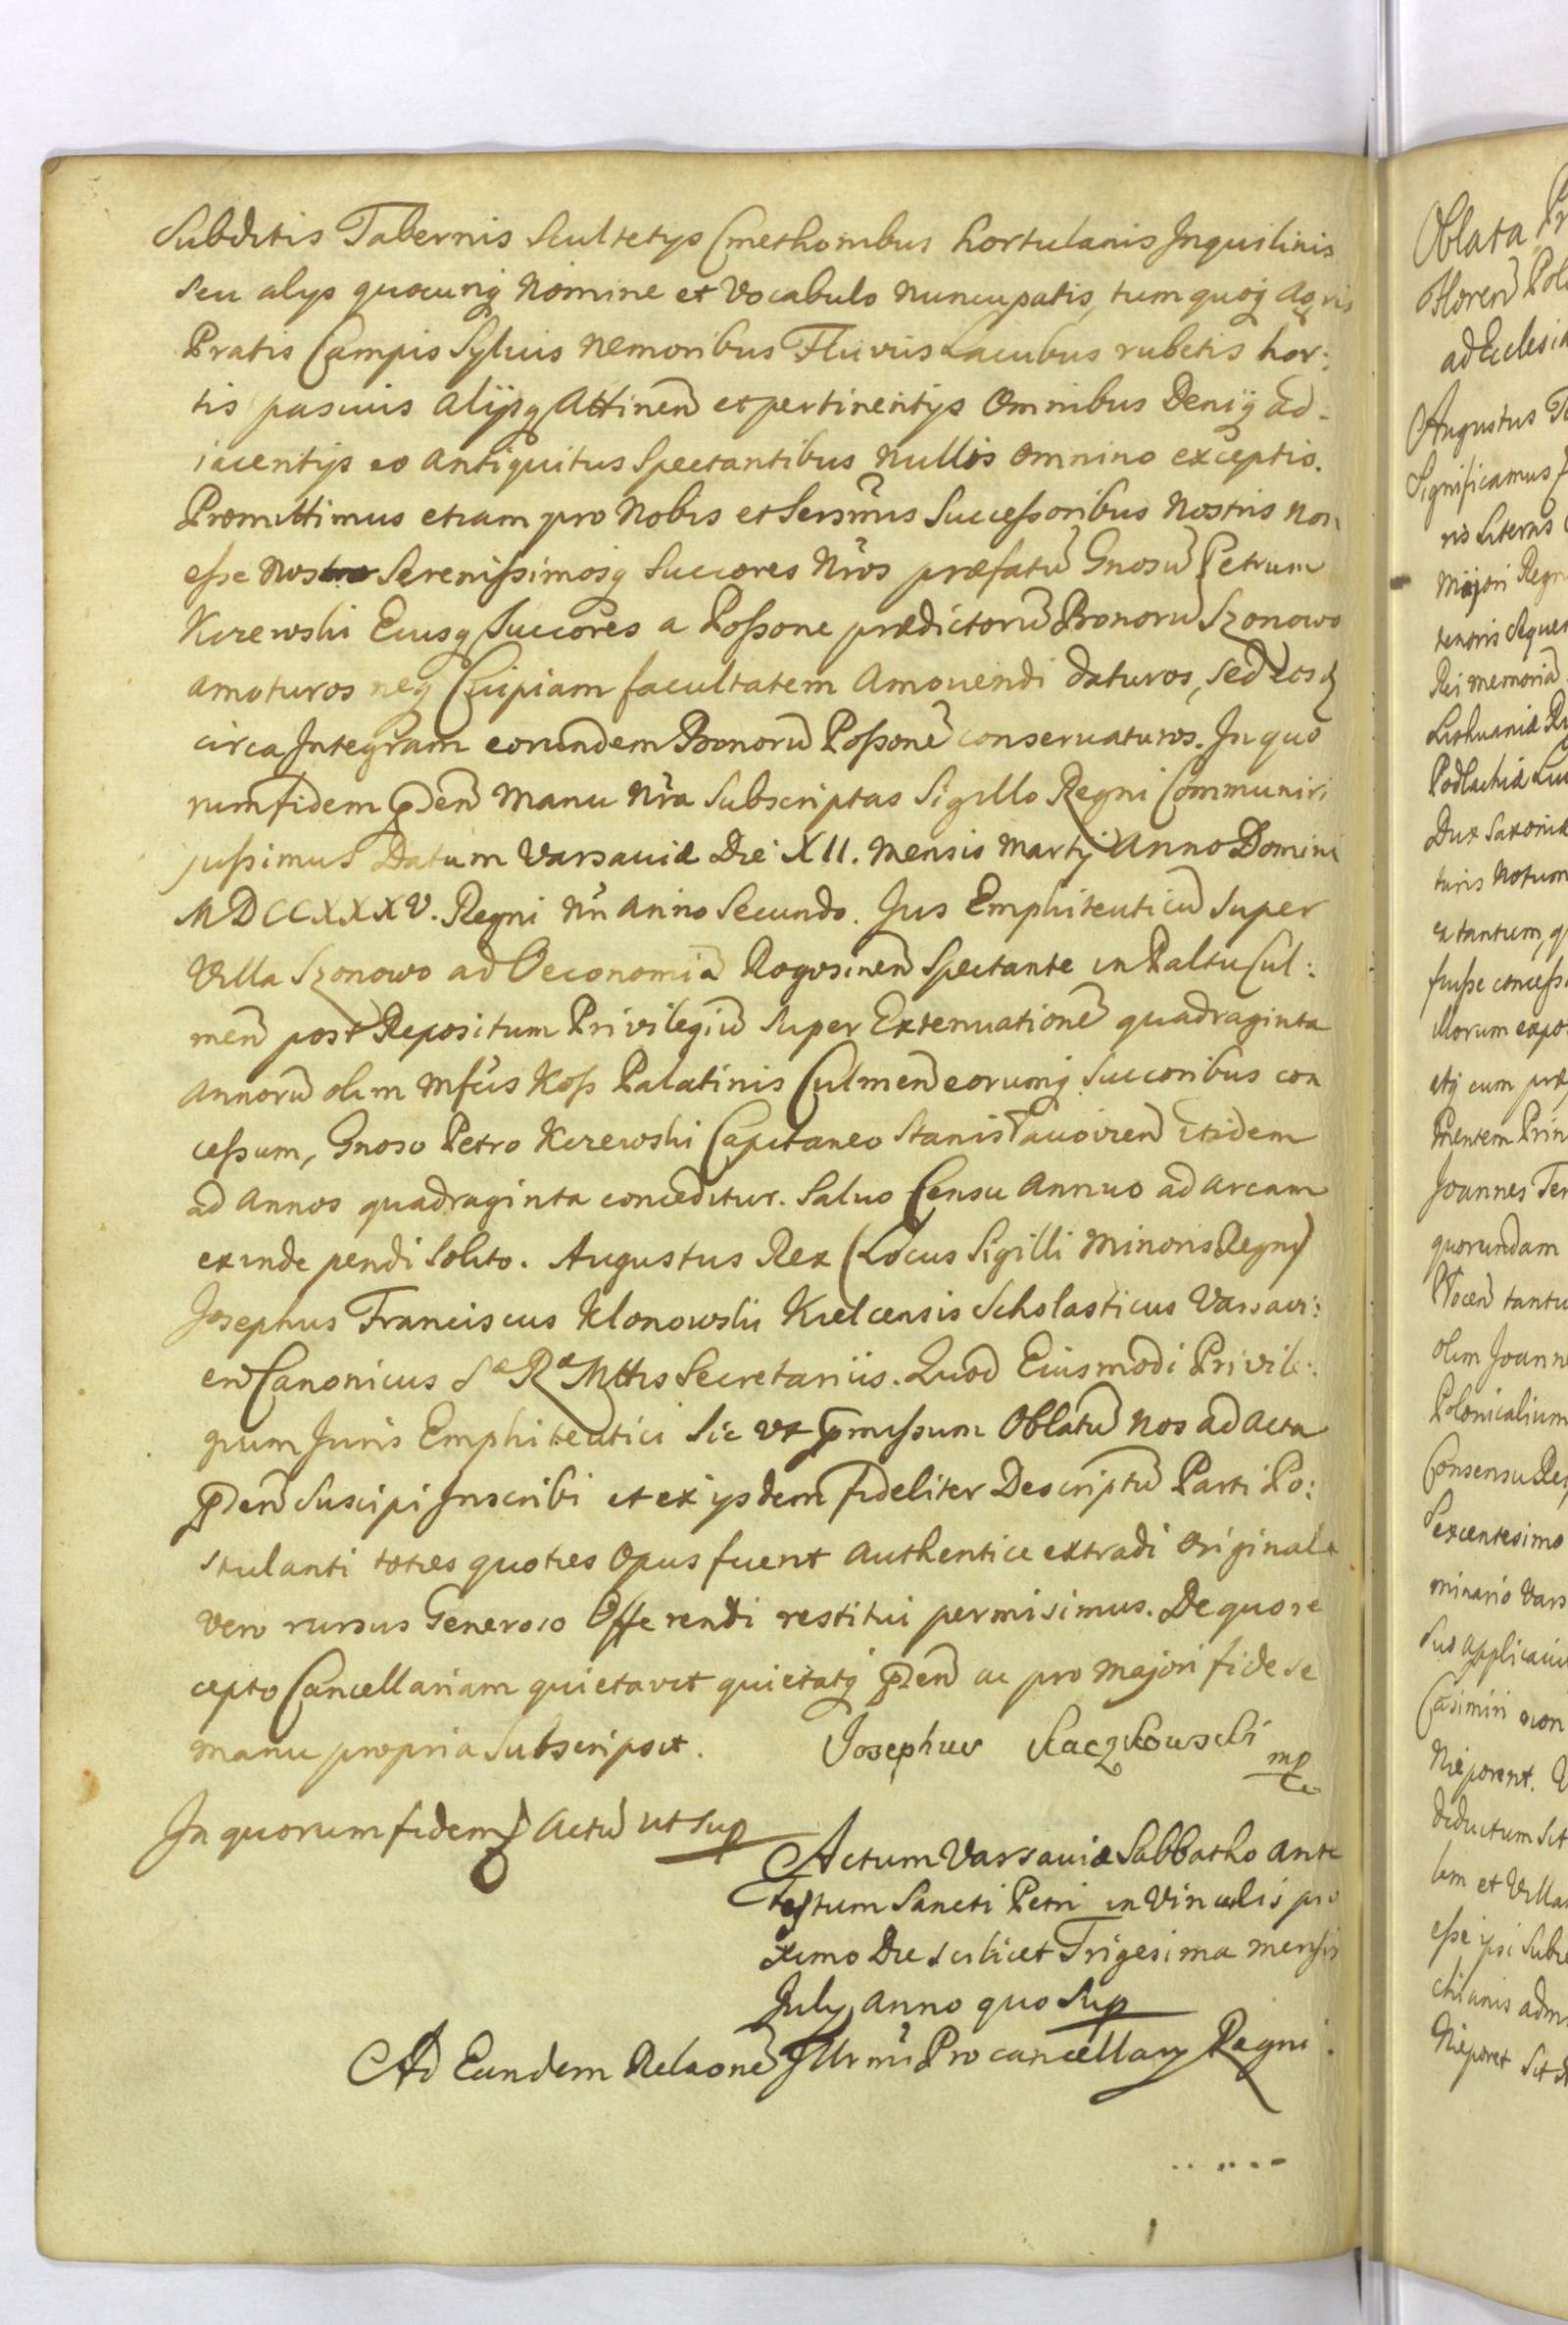 Subditis Tabernis Scultetys Cmethonibus hortulanis Inquilinis
seu alys quocunq Nomine et Vocabulo nuncupatis, tum quoq Agris
Pratis Campis Sylvis Nemoribus Fluviis Lacubus rubetis hor:
tis pascuis alijsq Attinen et pertinentijs Omnibus Deniq ad-
iacentijs eo Antiquitus Spectantibus Nullis Omnino exceptis.
Promittimus etiam pro Nobis et Sersmis Successoribus Nostris non
esse Nos Serenissimosq Succores Nros præfatu Gnosu Petrum
Kczewski Eiusq Succores a Possone prædictoru Bonoru Szonowo
amoturos neq Cuipiam facultatem Amovendi daturos, sed eosq
circa Integram eorundem Bonoru Possone conservaturos. In quo
rum fidem pden Manu Nra Subscriptas Sigillo Regni Communiri
jussimus Datum Varsaviæ Die XII. Mensis Martij Anno Domini
MDCCXXXV. Regni Nri Anno Secundo. Jus Emphiteuticu super
Villa Szonowo ad Oeconomia Rogosinen Spectante in Paltu Cul:
men post Repositum Privilegiu super Extenuatione quadraginta
Annoru olim Mfcis Koss Palatinis Culmen eorumq Succoribus con
cessum, Gnoso Petro Kczewski Capitaneo Stanislawowien itidem
ad Annos quadraginta conceditur. Salvo Censu Annuo ad Arcam
exinde pendi Solito. Augustus Rex (Locus Sigilli Minoris Regni)
Josephus Franciscus Klonowski Kielcensis Scholasticus Varsavi:
en Canonicus Sæ Ræ Mttis Secretariis. Quod Eiusmodi Privile:
gium Juris Emphiteutici Sic ut pmissum Oblatu Nos ad Acta
pden Suscipi Inscribi et ex ijsdem fideliter Descriptu Parti Po:
stulanti toties quoties Opus fuerit Authentice extradi Originale
vero rursus Generoso Offerendi restitui permisimus. De quo re
cepto Cancellariam quietavit quietatq pden ac pro Majori fide se
manu propria Subscripsit. Josephus Kaczkowski mp
In quorum fidem Actu ut sup
Actum Varsaviæ Sabbatho ante
Festum Sancti Petri in Vinculis pro
ximo Die scilicet Trigesima mensis
July Anno quo sup
Ad Eundem Relaone Illrmi Procancellary Regni.
Oblata
Floren
ad Ecclesia
Augustus
Significamus
ris Literis
Majori Regni
tenoris seque
Rei memoria
Dux Saxoniæ
turis Notum
fuisse concess
Joannes
quorundam
olim Joann
Polonicalium
Consensu
Sexcentesimo
minario Vars
Casimiri
deductum sit